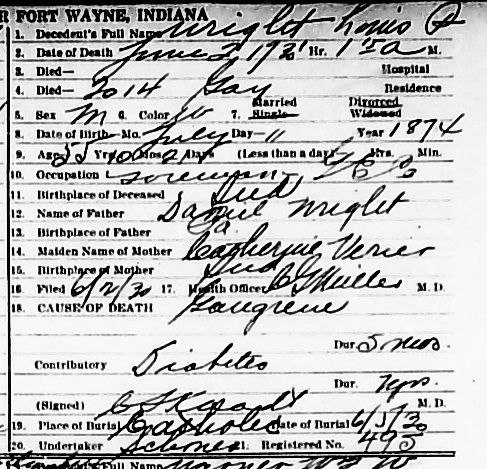 R FORT WAYNE, INDIANA
1. Decedent's Full Name Wright Louis
2. Date of Death June 2 1930 Hr. 1 50 A M.
3. Died— Hospital
4. Died— 2014 Gay Residence
5. Sex M 6. Color W 7. Married Single— Divorced Widowed
8. Date of Birth—Mo. July Day— 11 Year 1874
9. Age 55 Yrs 10 Mos 21 Days (Less than a day) Hrs. Min.
10. Occupation Foreman, G E
11. Birthplace of Deceased Ind
12. Name of Father Daniel Wright
13. Birthplace of Father Pa
14. Maiden Name of Mother Catherine Verier
15. Birthplace of Mother Ind
16. Filed 6/2/30 17. Health Officer M. D.
18. CAUSE OF DEATH Gangrene
Dur. 5 mos.
Contributory Diabetes
Dur. 7 yrs.
(Signed) M. D.
19. Place of Burial Catholic Date of Burial 6/5/30
20. Undertaker 21. Registered No. 495
Full Name